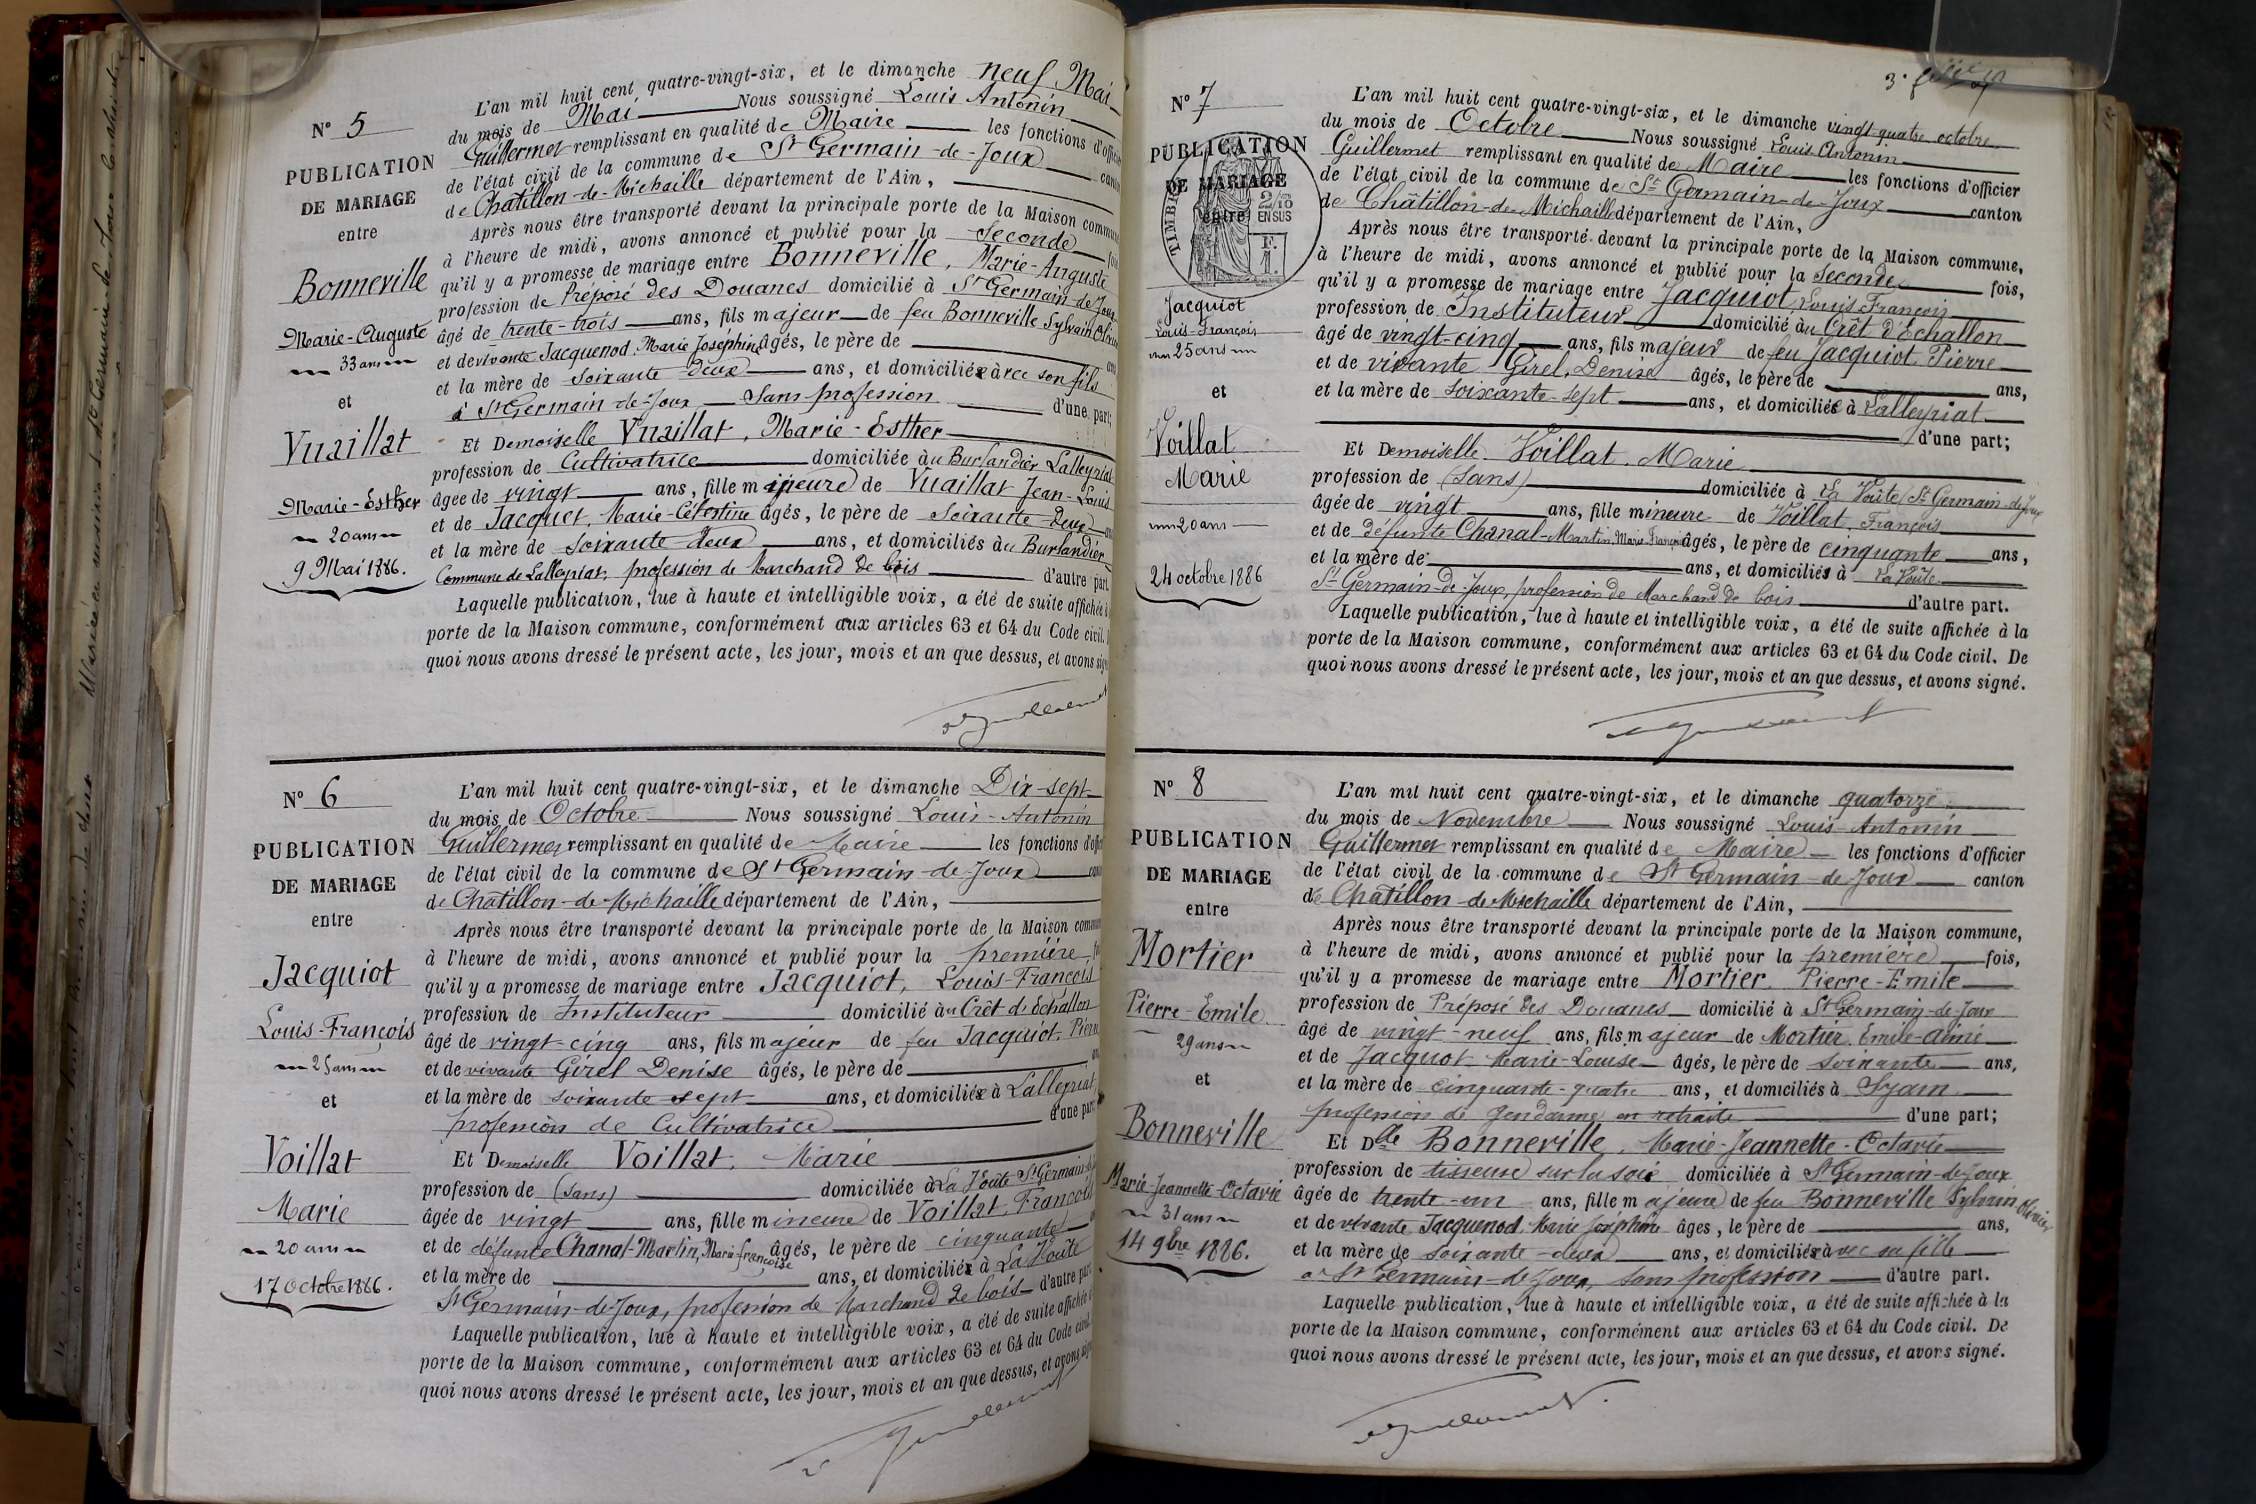 N° 5
PUBLICATION
DE MARIAGE
entre
Bonneville
Marie-Auguste
33 ans
et
Vuaillat
Marie-Esther
20 ans
9 Mai 1886.
L'an mil huit cent quatre-vingt-six, et le dimanche neuf Mai
du mois de Mai Nous soussigné Louis Antonin
Guillermet remplissant en qualité de Maire les fonctions d'officier
de l'état civil de la commune de St Germain-de-Joux canton
de Châtillon-de-Michaille département de l'Ain,
Après nous être transporté devant la principale porte de la Maison commune
à l'heure de midi, avons annoncé et publié pour la seconde fois
qu'il y a promesse de mariage entre Bonneville, Marie-Auguste
profession de Préposé des Douanes domicilié à St Germain-de-Joux
âgé de trente-trois ans, fils majeur de feu Bonneville Sylvain
et de vivante Jacquenod, Marie Joséphine âgés, le père de ans
et la mère de soixante deux ans, et domiciliés avec son fils
à St Germain-de-Joux Sans profession d'une part;
Et Demoiselle Vuaillat, Marie-Esther
profession de Cultivatrice domiciliée au Burlandier Lalleyriat
âgée de vingt ans, fille mineure de Vuaillat Jean-Louis
et de Jacquet, Marie-Célestine âgés, le père de soixante-deux ans
et la mère de soixante-deux ans, et domiciliés au Burlandier
Commune de Lalleyriat, profession de Marchand de bois d'autre part.
Laquelle publication, lue à haute et intelligible voix, a été de suite affichée à
porte de la Maison commune, conformément aux articles 63 et 64 du Code civil.
quoi nous avons dressé le présent acte, les jour, mois et an que dessus, et avons signé
Guillermet
N° 6
PUBLICATION
DE MARIAGE
entre
Jacquiot
Louis-François
25 ans
et
Voillat
Marie
20 ans
17 Octobre 1886.
L'an mil huit cent quatre-vingt-six, et le dimanche Dix-sept
du mois de Octobre Nous soussigné Louis-Antonin
Guillermet remplissant en qualité de Maire les fonctions d'officier
de l'état civil de la commune de St Germain-de-Joux canton
de Châtillon-de-Michaille département de l'Ain,
Après nous être transporté devant la principale porte de la Maison commune
à l'heure de midi, avons annoncé et publié pour la première
qu'il y a promesse de mariage entre Jacquiot, Louis-François
profession de Instituteur domicilié au Crêt d'Echallon
âgé de vingt-cinq ans, fils majeur de feu Jacquiot, Pierre
et de vivante Girel Denise âgés, le père de
et la mère de soixante sept ans, et domiciliés à Lalleyriat,
profession de Cultivatrice d'une part
Et Demoiselle Voillat, Marie
profession de (sans) domiciliée à La Voûte St Germain-de-
âgée de vingt ans, fille mineure de Voillat, François
et de défunte Chanal-Martin, Marie-Françoise âgés, le père de cinquante
et la mère de ans, et domiciliés à La Voûte
St Germain-de-Joux, profession de Marchand de bois d'autre part
Laquelle publication, lue à haute et intelligible voix, a été de suite affichée à
porte de la Maison commune, conformément aux articles 63 et 64 du Code civil.
quoi nous avons dressé le présent acte, les jour, mois et an que dessus, et avons signé
Guillermet
N° 7
PUBLICATION
DE MARIAGE
entre
TIMBRE
2/10
EN SUS
Jacquiot
Louis-François
25 ans
et
Voillat
Marie
20 ans
24 octobre 1886
L'an mil huit cent quatre-vingt-six, et le dimanche vingt-quatre octobre
du mois de Octobre Nous soussigné Louis Antonin
Guillermet remplissant en qualité de Maire les fonctions d'officier
de l'état civil de la commune de St Germain-de-Joux canton
de Châtillon-de-Michaille département de l'Ain,
Après nous être transporté devant la principale porte de la Maison commune,
à l'heure de midi, avons annoncé et publié pour la seconde fois,
qu'il y a promesse de mariage entre Jacquiot, Louis François
profession de Instituteur domicilié au Crêt d'Echallon
âgé de vingt-cinq ans, fils majeur de feu Jacquiot, Pierre
et de vivante Girel, Denise âgés, le père de ans,
et la mère de soixante-sept ans, et domiciliés à Lalleyriat
d'une part;
Et Demoiselle Voillat, Marie
profession de (Sans) domiciliée à La Voûte (St Germain-de-Joux
âgée de vingt ans, fille mineure de Voillat, François
et de défunte Chanal-Martin, Marie-Françoise âgés, le père de cinquante ans,
et la mère de ans, et domiciliés à La Voûte
St Germain-de-Joux, profession de Marchand de bois d'autre part.
Laquelle publication, lue à haute et intelligible voix, a été de suite affichée à la
porte de la Maison commune, conformément aux articles 63 et 64 du Code civil. De
quoi nous avons dressé le présent acte, les jour, mois et an que dessus, et avons signé.
Guillermet
N° 8
PUBLICATION
DE MARIAGE
entre
Mortier
Pierre-Emile
29 ans
et
Bonneville
Marie-Jeannette-Octavie
31 ans
14 9bre 1886.
L'an mil huit cent quatre-vingt-six, et le dimanche quatorze
du mois de Novembre Nous soussigné Louis-Antonin
Guillermet remplissant en qualité de Maire les fonctions d'officier
de l'état civil de la commune de St Germain-de-Joux canton
de Châtillon-de-Michaille département de l'Ain,
Après nous être transporté devant la principale porte de la Maison commune,
à l'heure de midi, avons annoncé et publié pour la première fois,
qu'il y a promesse de mariage entre Mortier, Pierre-Emile
profession de Préposé des Douanes domicilié à St Germain-de-Joux
âgé de vingt-neuf ans, fils majeur de Mortier, Emile-Aimé
et de Jacquot Marie-Louise âgés, le père de soixante ans,
et la mère de cinquante-quatre ans, et domiciliés à Syam
profession de gendarme en retraite d'une part;
Et Dlle Bonneville, Marie-Jeannette-Octavie
profession de tisseuse sur la soie domiciliée à St Germain-de-Joux
âgée de trente-un ans, fille majeure de feu Bonneville Sylvain Olivier
et de vivante Jacquenod, Marie Joséphine âgés, le père de ans,
et la mère de soixante-deux ans, et domiciliés avec sa fille
à St Germain-de-Joux, sans profession d'autre part.
Laquelle publication, lue à haute et intelligible voix, a été de suite affichée à la
porte de la Maison commune, conformément aux articles 63 et 64 du Code civil. De
quoi nous avons dressé le présent acte, les jour, mois et an que dessus, et avons signé.
Guillermet